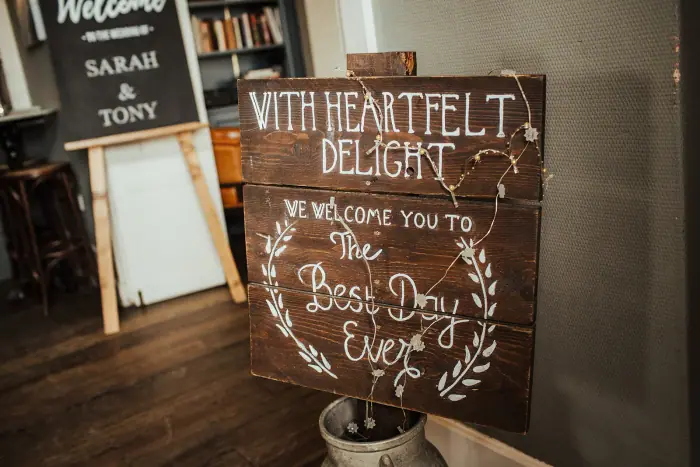 Welcome
- TO THE WEDDING OF -
SARAH
&
TONY
WITH HEARTFELT
DELIGHT
WE WELCOME YOU TO
The
Best Day
Ever